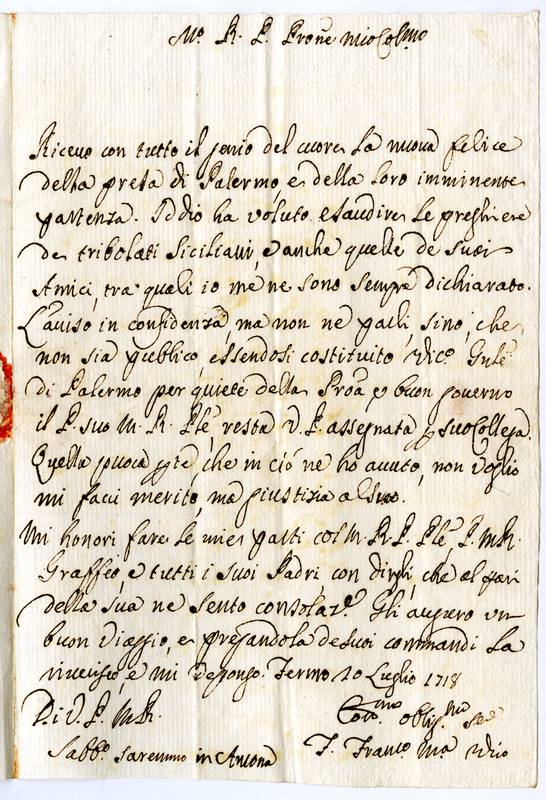 Mo. R. P. Prone mio Colmo
Riceuo con tutto il genio del cuore la nuoua felice
della presa di Palermo, e della loro imminente
partenza. Iddio ha voluto esaudire le preghiere
de tribolati Siciliani, e anche quelle de suoi
Amici, tra quali io me ne sono sempre dichiarato.
L'auiso in confidenza, ma non ne parli, sino, che
non sia publico essendosi costituito Vico. Gnle
di Palermo per quiete della Proa. e buon gouerno
il P. suo M. R. Ple, resta V. P. assegnata suo Collega.
Quella puoca pte, che in ciò ne ho auuto, non voglio
mi facci merito, ma giustizia al suo.
Mi honori fare le mie parti col M. R. P. Ple, P. M. R.
Graffeo, e tutti i suoi Padri con dirgli, che al pari
della sua ne sento consolaze. Gli auguro un
buon viaggio, e pregandola de suoi commandi la
riuerisco, e mi depongo. Fermo 10 Luglio 1718
Di V. P. M. R.
oblig.mo
Sabbo. saremmo in Ancona
F. Franco. Ma.